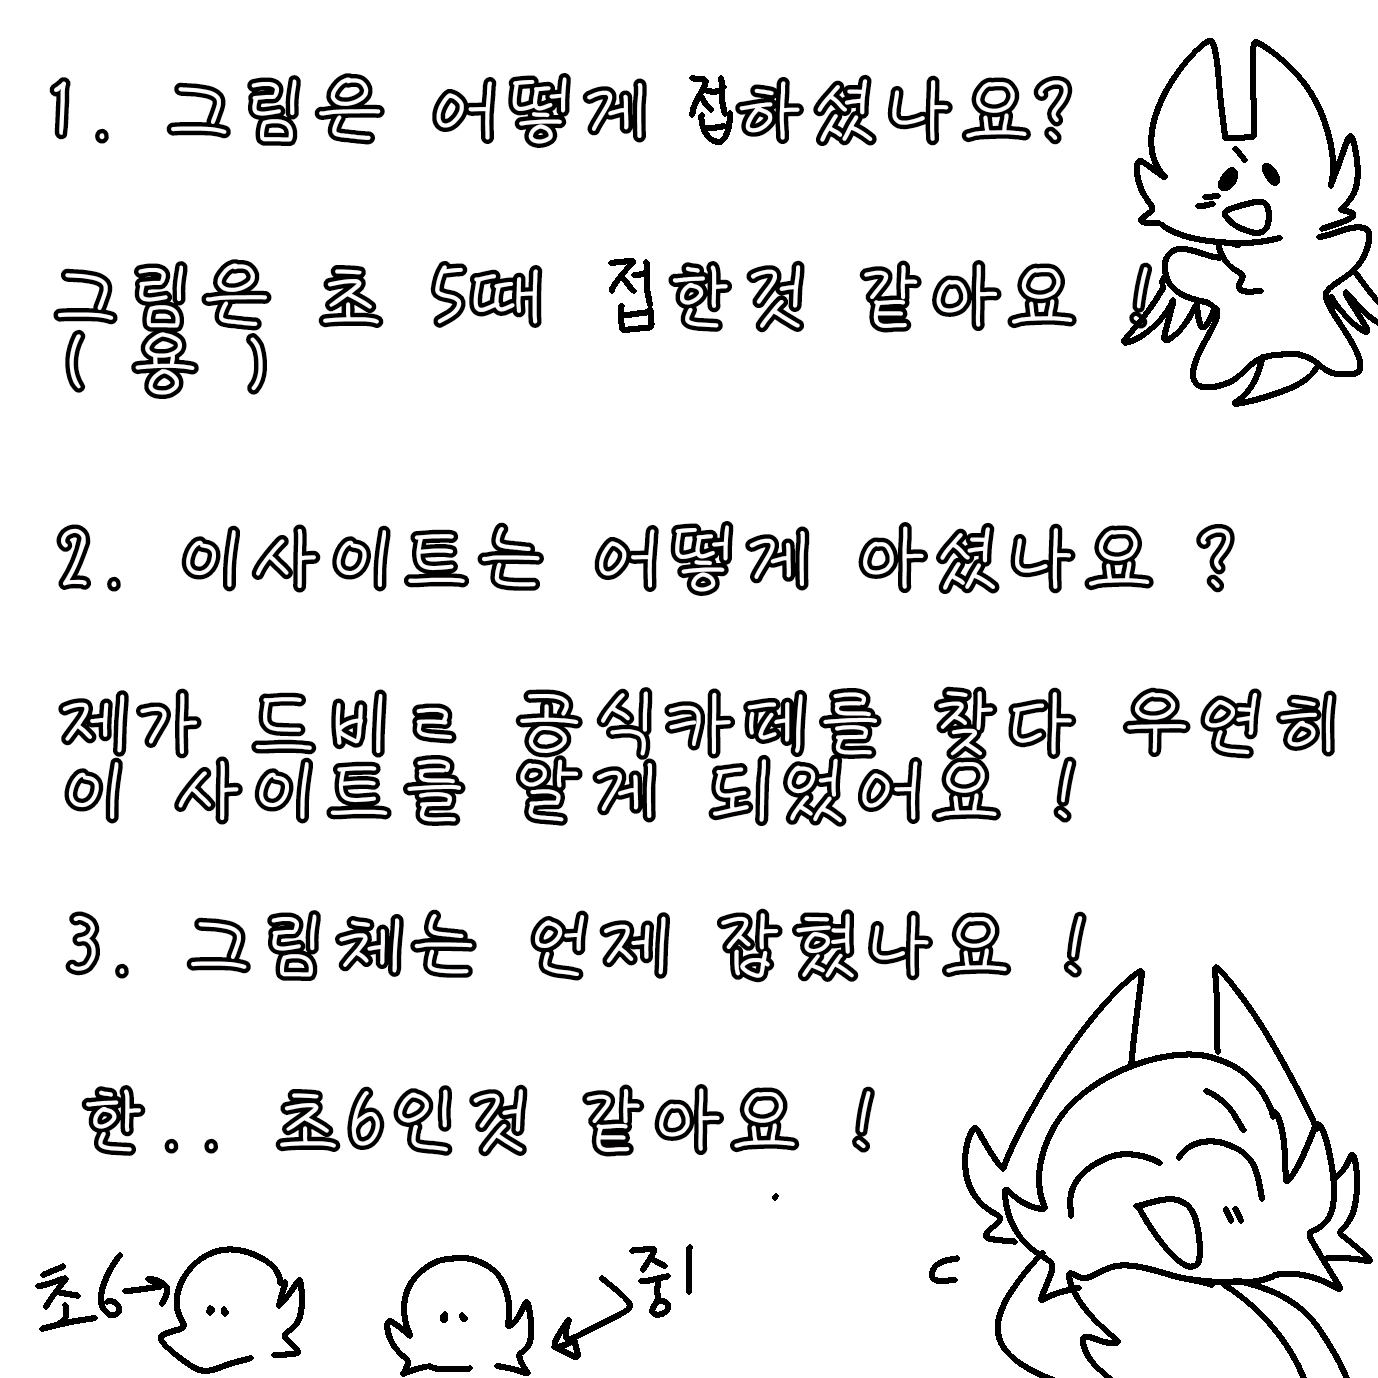 1. 그림은 어떻게 접하셨나요?
그림은 초 5때 접한것 같아요 !
( 용 )
2. 이사이트는 어떻게 아셨나요 ?
제가 드비ㄹ 공식카페를 찾다 우연히
이 사이트를 알게 되었어요 !
3. 그림체는 언제 잡혔나요 !
한.. 초6인것 같아요 !
초6→
중1